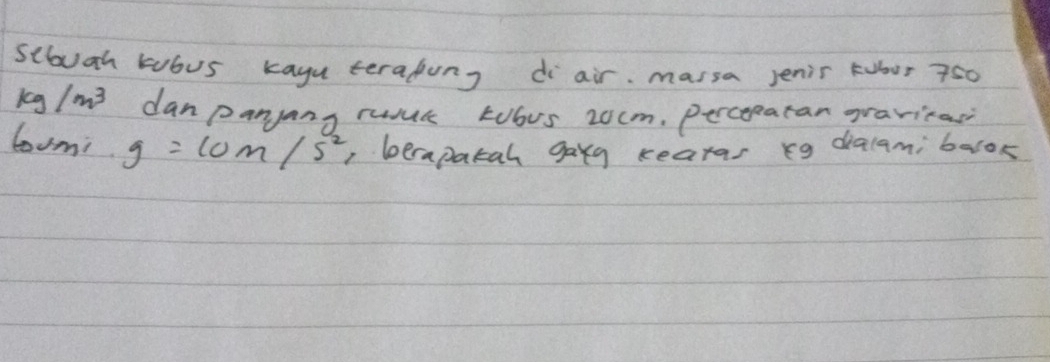 sebuah kubus kayu terapung di air. massa jenis kubus 750
kg/m³ dan panjang rusuk kubus 20cm. percepatan gravitasi
bumi g = 10 m/s², berapakah gaya keatas yg dialami balok